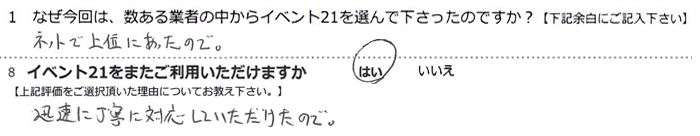 1 なぜ今回は、数ある業者の中からイベント21を選んで下さったのですか？【下記余白にご記入下さい】
ネットで上位にあったので。
8 イベント21をまたご利用いただけますか はい いいえ
【上記評価をご選択頂いた理由についてお教え下さい。】
迅速に丁寧に対応していただけたので。